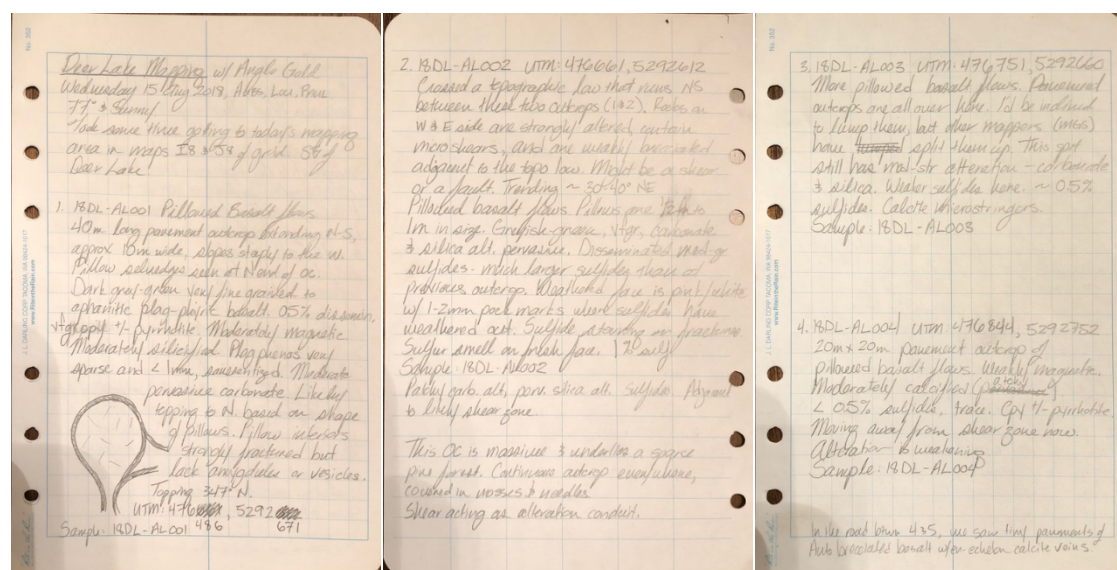 Deer Lake Mapping w/ Anglo Gold
Wednesday 15 Aug 2018, Lou, Prue
77° & Sunny
Took some time getting to today's mapping
area in maps I8 & J8 of grid. SE of
Deer Lake.
1. 18DL-AL001 Pillowed Basalt flows
40m long pavement outcrop extending N-S,
approx 10m wide, slopes steeply to the W.
Pillow selvedges seen at N end of oc.
Dark grey-green very fine grained to
aphanitic plag-phyric basalt. 0.5% dissemin.
vfgr cpy +/- pyrrhotite. Moderately magnetic
Moderately silicified. Plag phenos very
sparse and < 1mm, saussritized. Moderate
pervasive carbonate. Likely
topping to N. based on shape
of pillows. Pillow interiors
strongly fractured but
lack amygdules or vesicles.
Topping 347° N.
UTM: 476 , 5292
486 671
Sample: 18DL-AL001
2. 18DL-AL002 UTM: 476661, 5292612
Crossed a topographic low that runs NS
between these two outcrops (1&2). Rocks on
W & E side are strongly altered, contain
microshears, and are weakly brecciated
adjacent to the topo low. Might be a shear
or a fault. Trending ~ 30-40° NE
Pillowed basalt flows. Pillows are to
1m in size. Greyish-green, vfgr, carbonate
& silica alt. pervasive. Disseminated med-gr
sulfides - much larger sulfides than at
previous outcrop. Weathered face is pink/white
w/ 1-2mm pock marks where sulfides have
weathered out. Sulfide staining on fractures
Sulfur smell on fresh face. 1% sulf
Sample: 18DL-AL002
Patchy carb. alt, perv. silica alt. Sulfides. Adjacent
to likely shear zone.
This OC is massive & underlies a sparse
pine forest. Continuous outcrop everywhere,
covered in mosses & needles
Shear acting as alteration conduit.
3. 18DL-AL003 UTM: 476751, 5292660
More pillowed basalt flows. Pavement
outcrops are all over here. I'd be inclined
to lump them, but other mappers (MGS)
have split them up. This spot
still has mod-str alteration - carbonate
& silica. Weaker sulfides here. ~ 0.5%
sulfides. Calcite microstringers.
Sample: 18DL-AL003
4. 18DL-AL004 UTM: 476844, 5292752
20m x 20m pavement outcrop of
pillowed basalt flows. Weakly magnetic.
Moderately calcified (patchy)
< 0.5% sulfides, trace. Cpy +/- pyrrhotite.
Moving away from shear zone now.
Alteration is weakening
Sample: 18DL-AL004
In the road btwn 4&5, we saw tiny pavements of
Auto brecciated basalt w/ en echelon calcite veins.
No. 352
J. L. DARLING CORP. TACOMA, WA
www.RiteintheRain.com
No. 352
J. L. DARLING CORP. TACOMA, WA 98424-1017
www.RiteintheRain.com